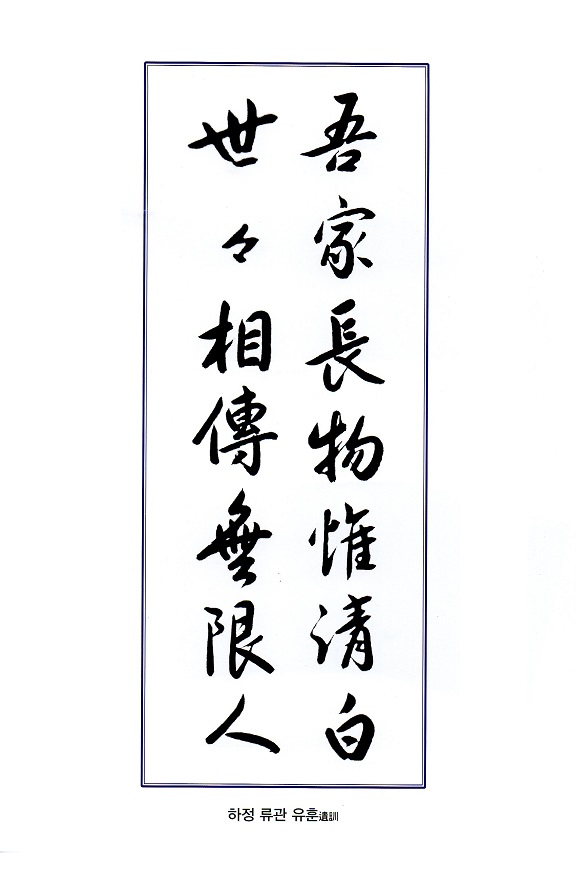 吾家長物惟清白
世々相傳無限人
하정 류관 유훈遺訓